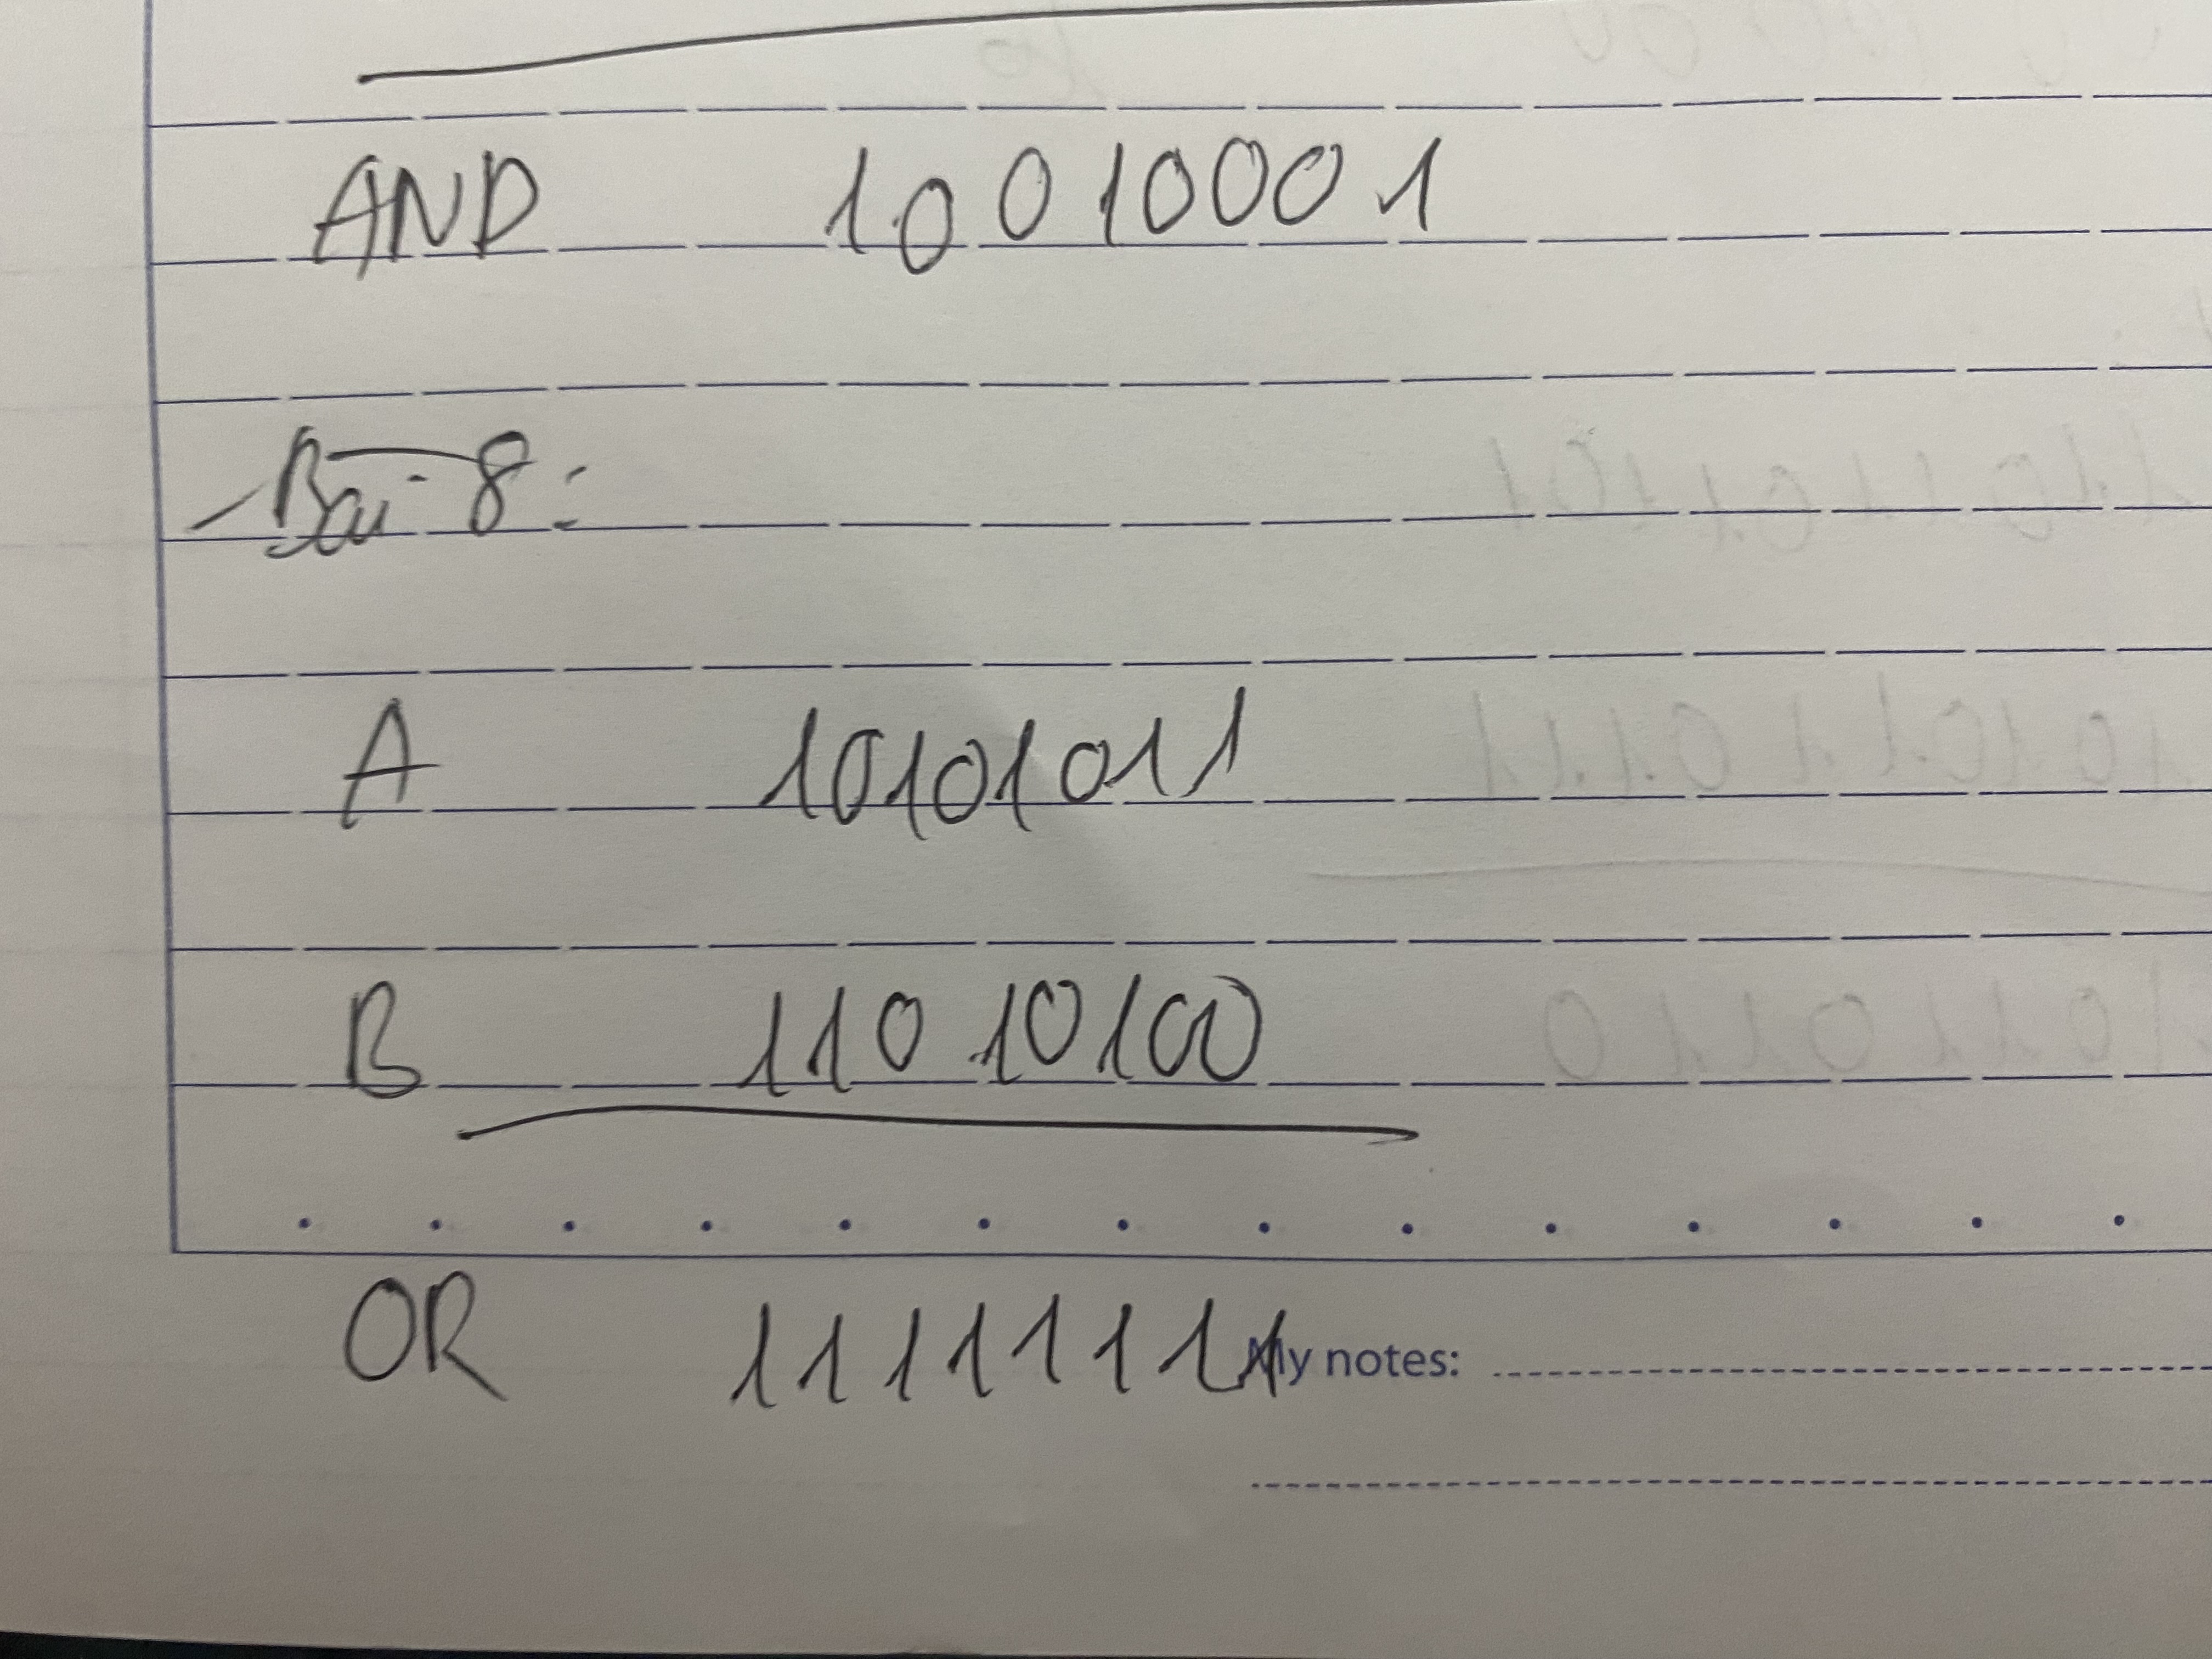 AND 10010001
- Bài 8 :
A 10101011
B 11010100
OR 11111111
My notes: